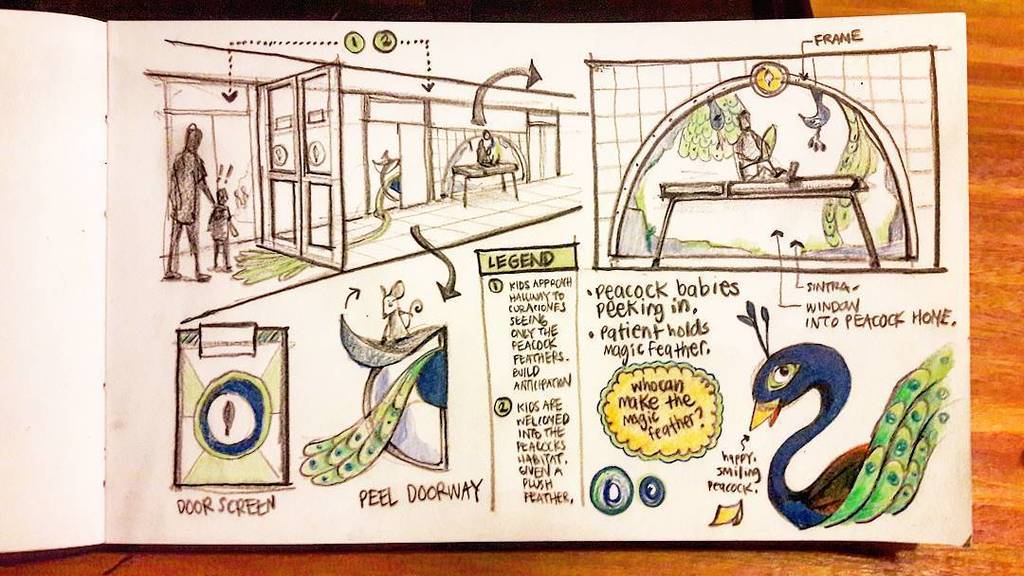 1 2
FRAME
LEGEND
1 KIDS APPROACH
HALLWAY TO
CURACIONES
SEEING
ONLY THE
PEACOCK
FEATHERS.
BUILD
ANTICIPATION
2 KIDS ARE
WELCOMED
INTO THE
PEACOCKS
HABITAT.
GIVEN A
PLUSH
FEATHER.
• PEACOCK BABIES
PEEKING IN.
• PATIENT HOLDS
MAGIC FEATHER.
SINTRA.
WINDOW
INTO PEACOCK HOME.
who can
make the
magic
feather?
happy,
smiling
peacock.
DOOR SCREEN
PEEL DOORWAY